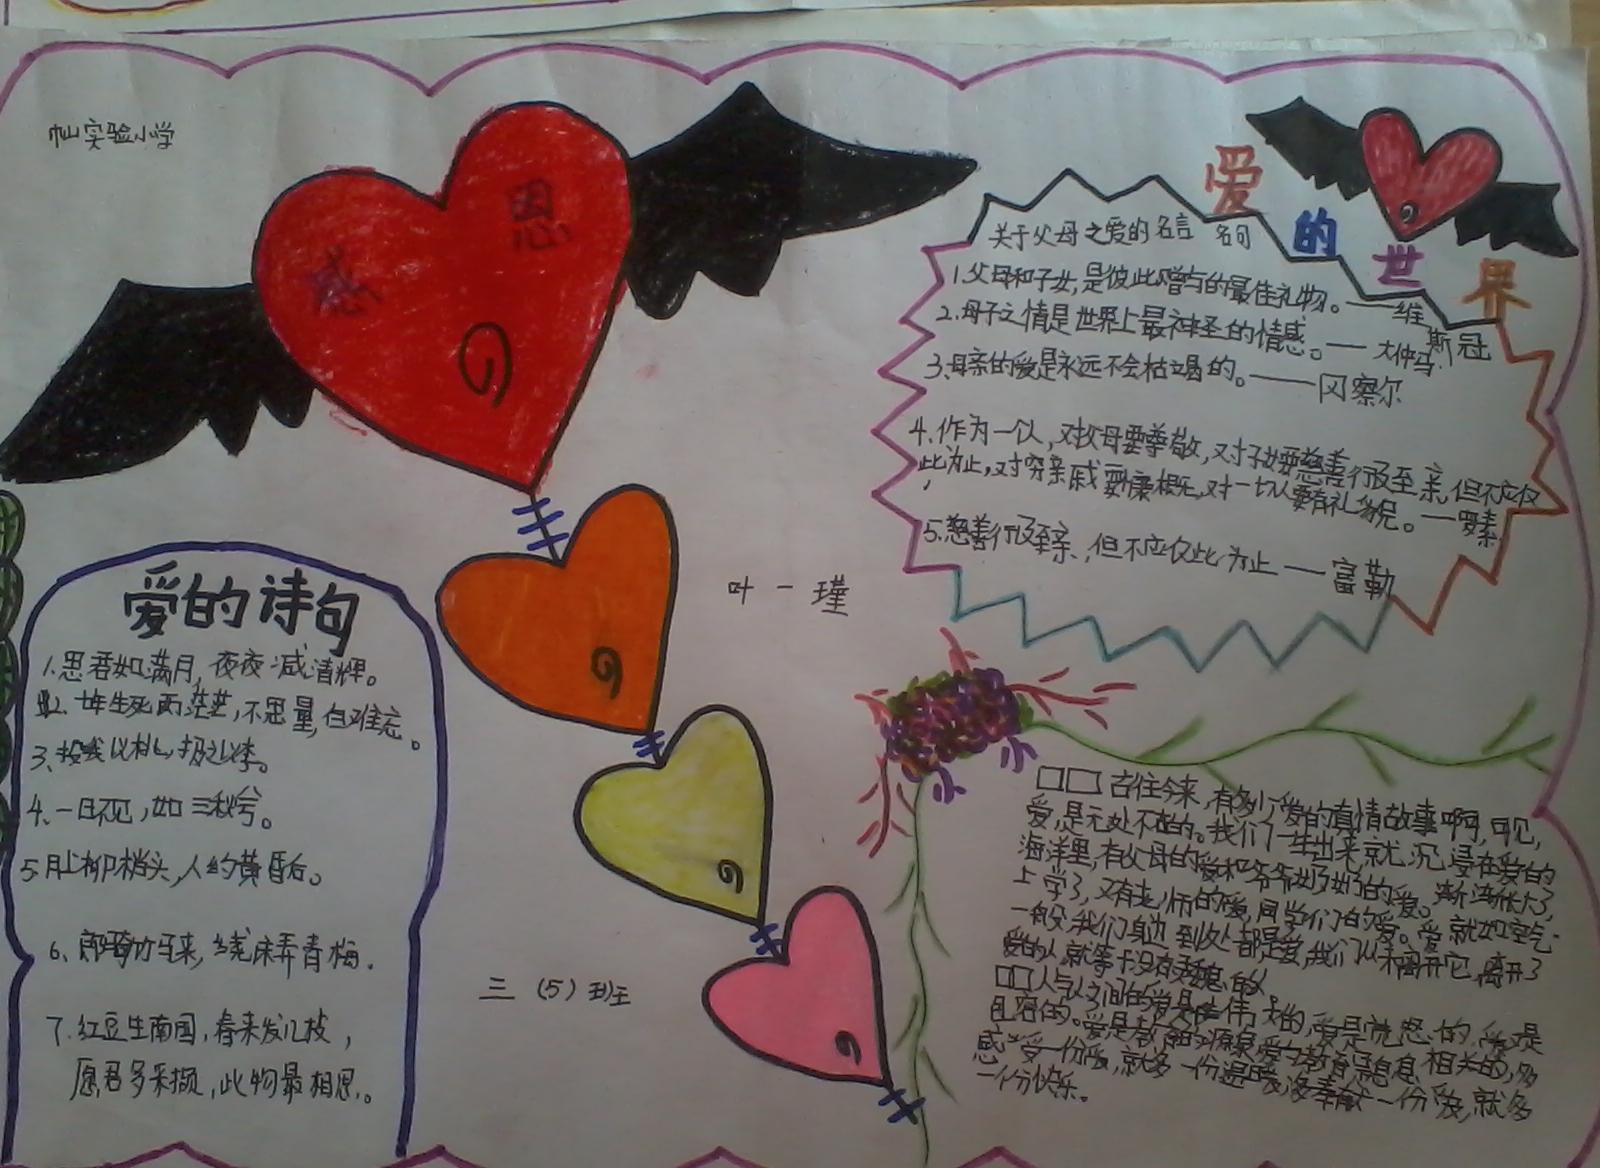 实验小学
感恩
爱的世界
关于父母之爱的名言 名句
1.父母和子女,是彼此赠与的最佳礼物。——维斯冠
2.母子之情是世界上最神圣的情感。——大仲马
3.母亲的爱是永远不会枯竭的。——冈察尔
4.作为一个人,对父母要尊敬,对子女要慈善行及至亲,但不应仅
此为止,对穷亲戚要慷概,对一切人要有礼貌。——罗素
5.慈善行及至亲,但不应仅此为止——富勒
叶一瑾
爱的诗句
1.思君如满月,夜夜减清辉。
2.十年生死两茫茫,不思量,自难忘。
3、投我以桃,报之以李。
4、一日不见,如三秋兮。
5月上柳梢头,人约黄昏后。
6、郎骑竹马来,绕床弄青梅.
7.红豆生南国,春来发几枝,
愿君多采撷,此物最相思。
三(5)班
□□古往今来,有多少爱的真情故事啊,可见,
爱,是无处不在的。我们一生出来,就沉浸在爱的
海洋里,有父母的爱和爷爷奶奶的爱。渐渐长大了,
上学了,又有老师的爱,同学们的爱。爱就如空气
一般,我们身边到处都是爱,我们从未离开它,离开了
爱的人就等于没有
□□人与人之间的爱是伟大的,爱是的,爱是
的。爱是教育的源泉,爱与教育息息相关的,多
感受一份爱,就多一份,多奉献一份爱,就多
一份快乐。